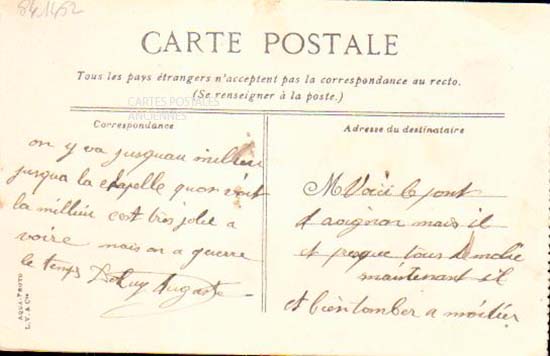 84.1452
CARTE POSTALE
Tous les pays étrangers n'acceptent pas la correspondance au recto.
(Se renseigner à la poste.)
CARTES POSTALES
ANCIENNES
Correspondance
on y va jusquau millieu
jusqua la chapelle quon voit
la millieu cest très jolie a
voire mais on a guerre
le temps Auguste
AQUA-PHOTO
L. V. & Cie
Adresse du destinataire
M Voici le pont
d avignon mais il
et presque tous demolie
maintenant il
et bien tomber a moitier